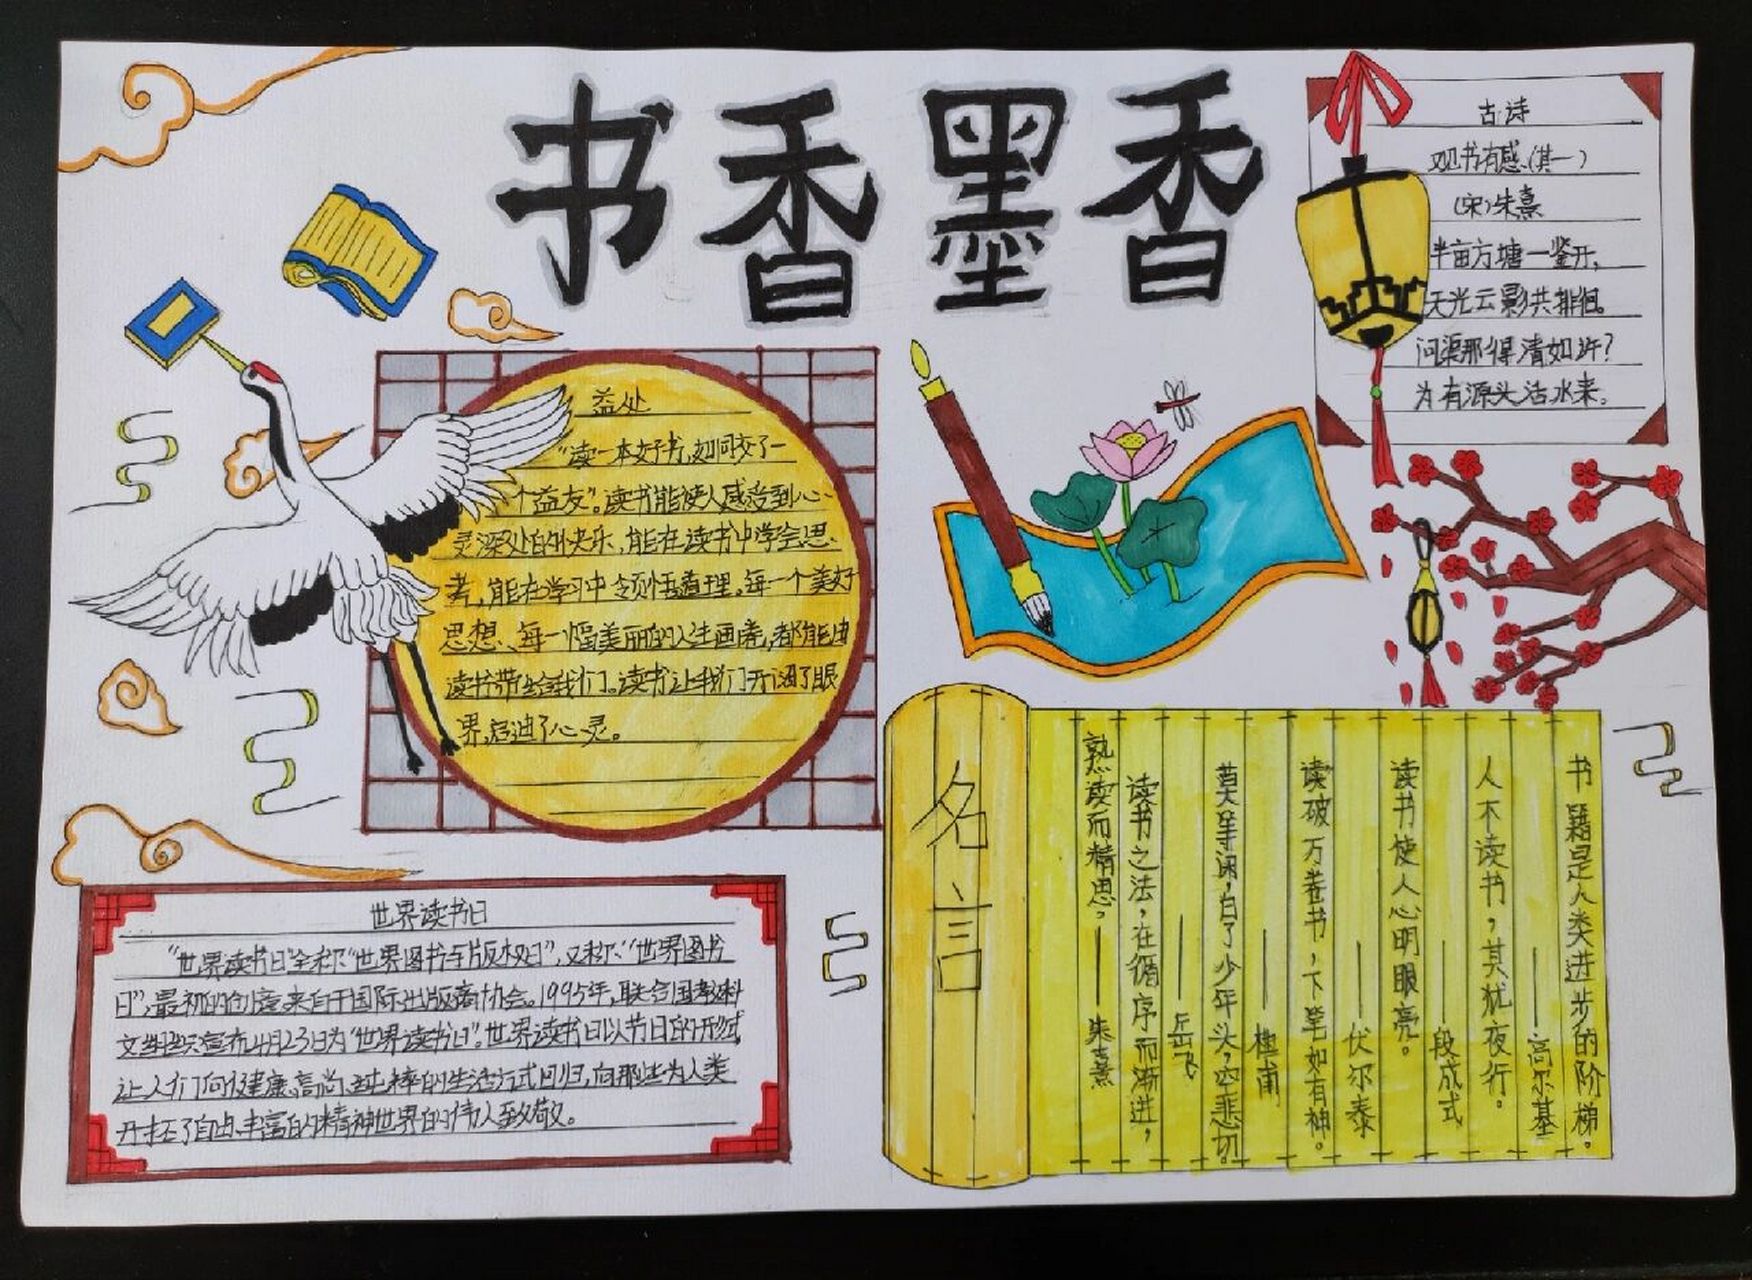 书香墨香
古诗
观书有感(其一)
(宋)朱熹
半亩方塘一鉴开,
天光云影共徘徊。
问渠那得清如许?
为有源头活水来。
益处
“读一本好书,如同交了一
个益友”。读书能使人感受到心
灵深处的快乐,能在读书中学会思
考,能在学习中领悟道理。每一个美好
思想、每一幅美丽的人生画卷,都能由
读书带给我们。读书让我们开阔了眼
界,启迪了心灵。
名言
书籍是人类进步的阶梯。
——高尔基
人不读书,其犹夜行。
——段成式
读书使人心明眼亮。
——伏尔泰
读破万卷书,下笔如有神。
——杜甫
莫等闲,白了少年头,空悲切。
——岳飞
读书之法,在循序而渐进,
熟读而精思,——朱熹
世界读书日
“世界读书日”全称“世界图书与版权日”,又称“世界图书
日”,最初的创意来自于国际出版商协会。1995年,联合国教科
文组织宣布4月23日为“世界读书日”。世界读书日以节日的形式,
让人们向健康、高尚、纯粹的生活方式回归,向那些为人类
开拓了自由、丰富的精神世界的伟人致敬。